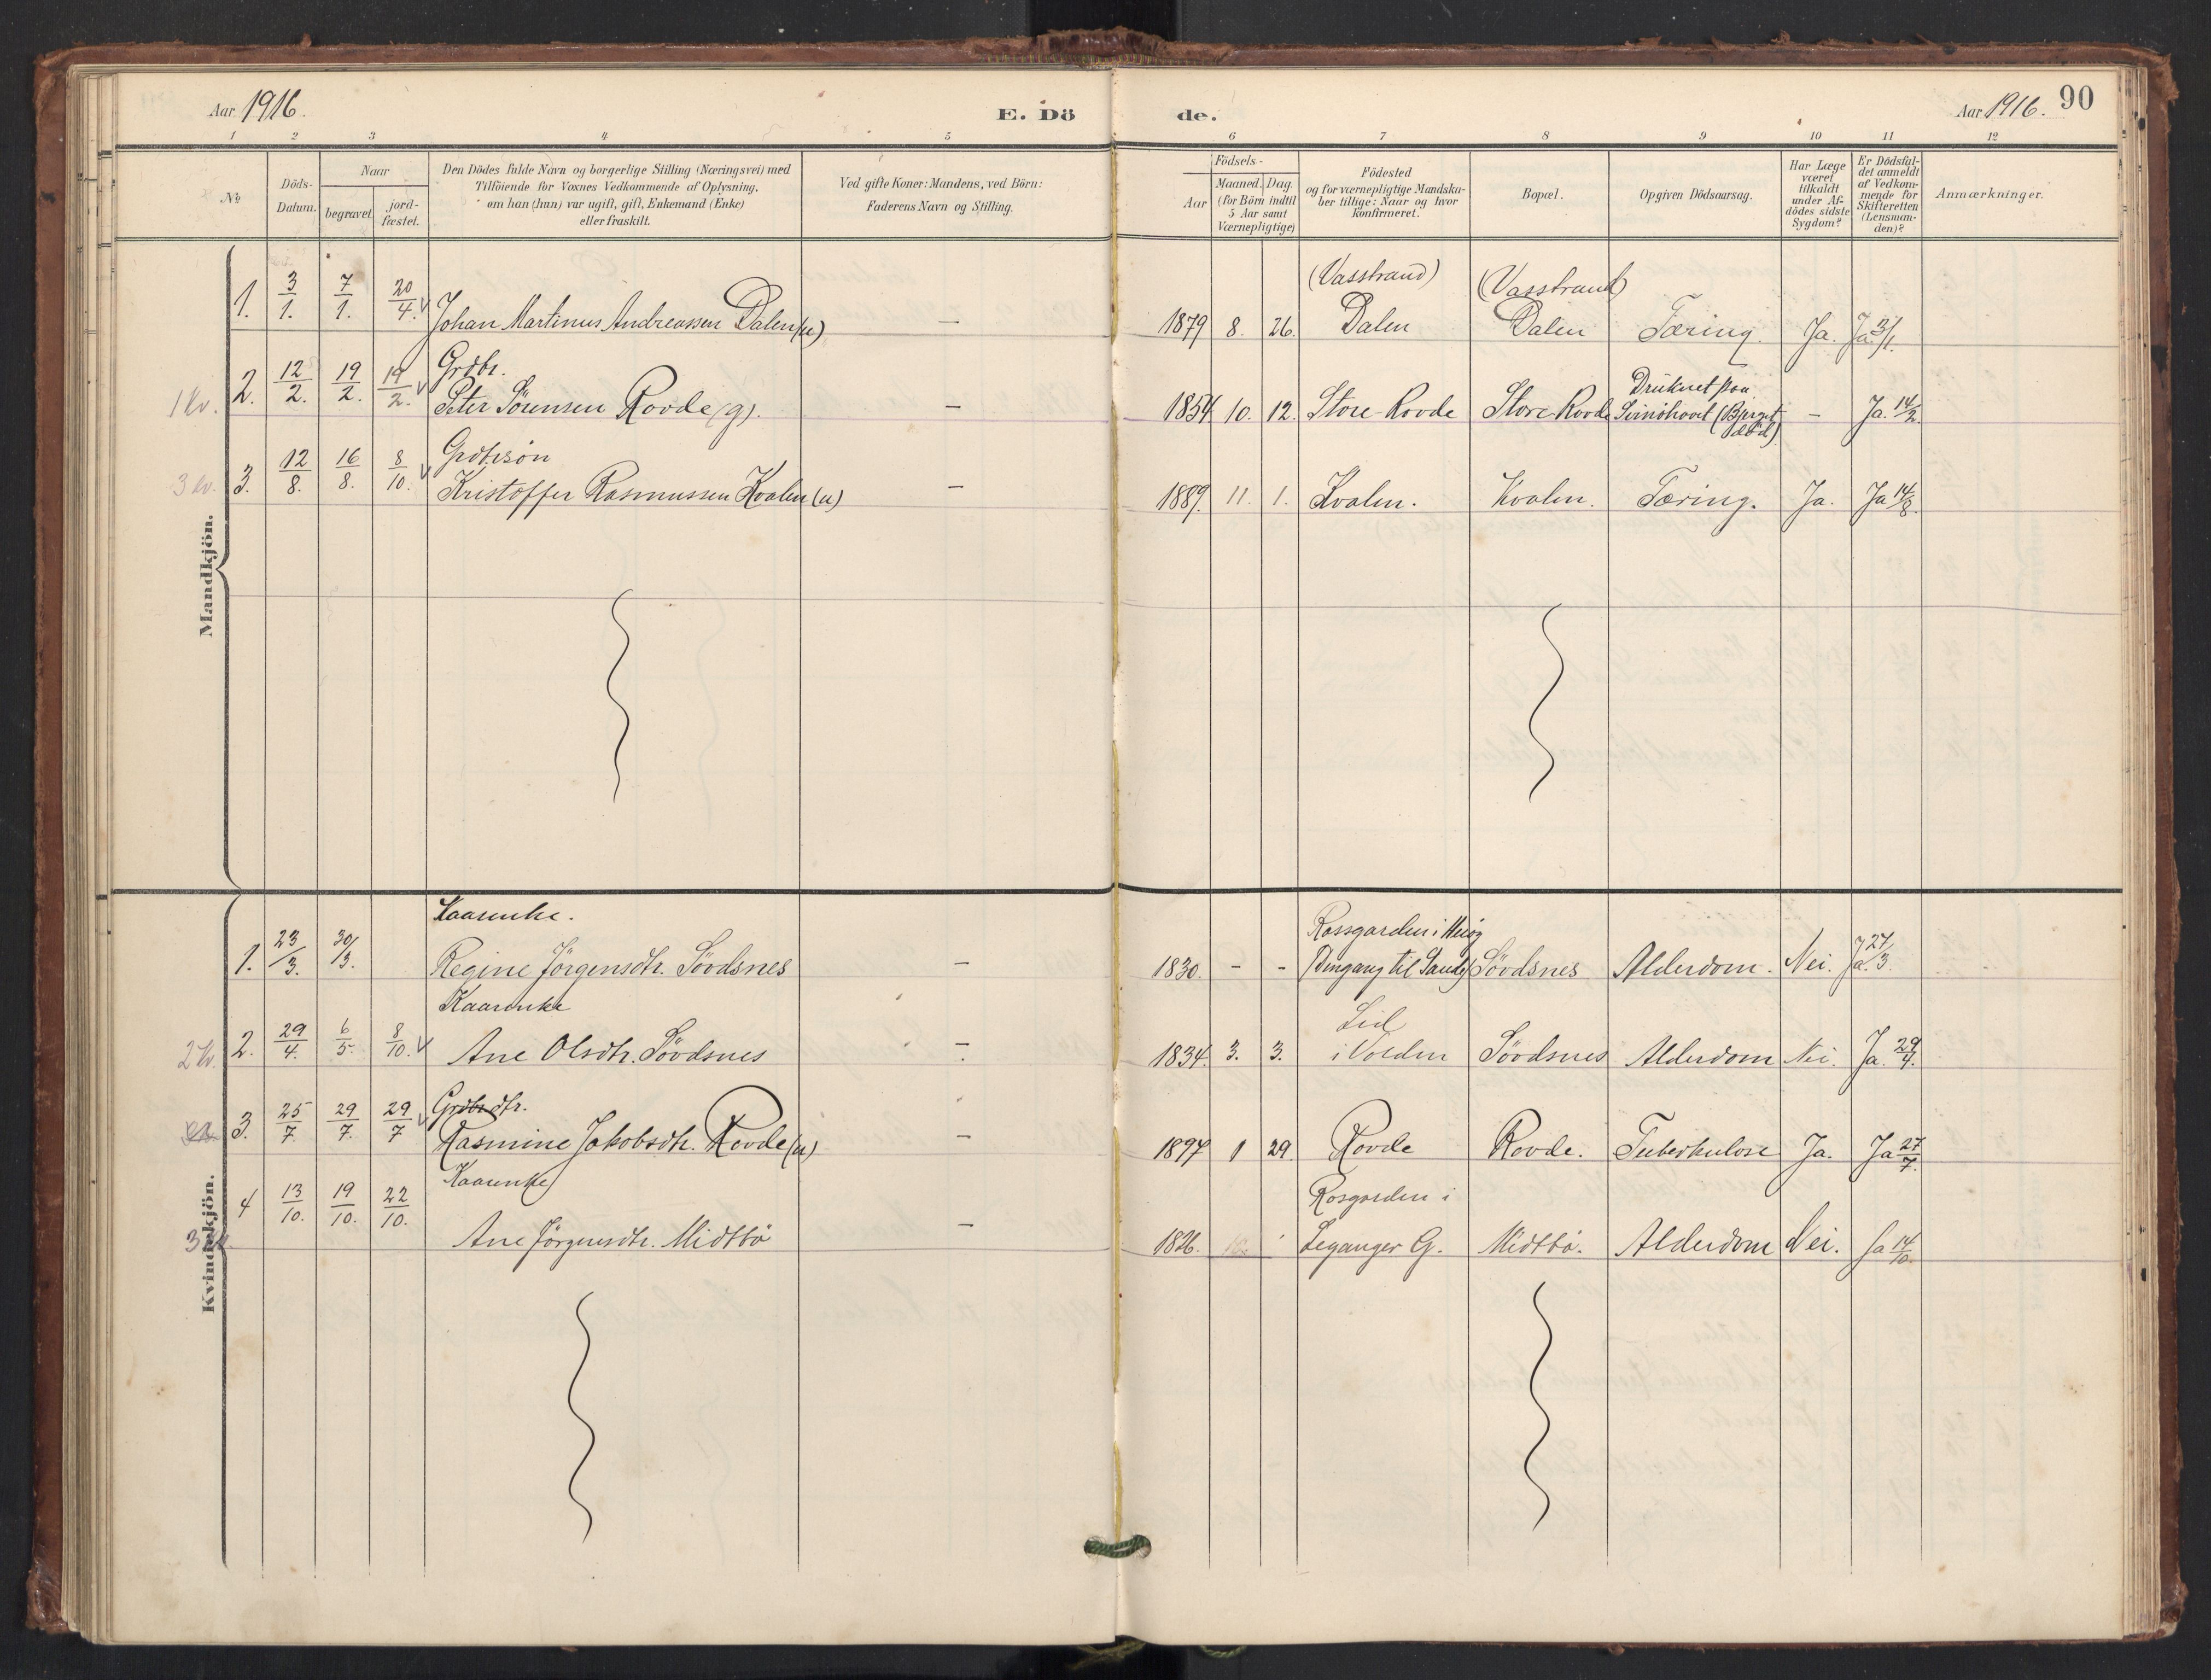 Aar 1916.
E. Dö
de.
Aar 1916.
90
1 2 3 4 5 6 7 8 9 10 11 12
No
Döds-
Datum.
Naar
begravet.
jord-
fæstet.
Den Dödes fulde Navn og borgerlige Stilling (Næringsvei) med
Tilföiende for Voxnes Vedkommende af Oplysning,
om han (hun) var ugift, gift, Enkemand (Enke)
eller fraskilt.
Ved gifte Koner: Mandens, ved Börn:
Faderens Navn og Stilling.
Födsels-
Aar
Maaned. Dag.
(for Börn indtil
5 Aar samt
Værnepligtige)
Födested
og for værnepligtige Mandska-
ber tillige: Naar og hvor
Konfirmeret.
Bopæl.
Opgiven Dödsaarsag.
Har Læge
været
tilkaldt
under Af-
dödes sidste
Sygdom?
Er Dödsfal-
det anmeldt
af Vedkom-
mende for
Skifteretten
(Lensman-
den)?
Anmærkninger.
Mandkjön.
(Vasstrand) (Vasstrand)
1. 3/1. 7/1. 20/4. Johan Martinus Andreassen Dalen (u) — 1879 8. 26. Dalen Dalen Tæring. Ja. Ja 3/1.
Grdbr. Druknet paa
2. 12/2. 19/2. 19/2. Peter Sörensen Rovde (g). — 1854. 10. 12. Store-Rovde Store Rovde (Bjerget — Ja. 14/2.
död)
Grdbrsön
3. 12/8. 16/8. 8/10. Kristoffer Rasmussen Kvalen (u) — 1889. 11. 1. Kvalen. Kvalen. Tæring. Ja. Ja 14/8.
Kvindekjön.
Kaarenke. Rossgarden i
1. 23/3. 30/3. Regine Jörgensdtr. Sövdsnes — 1830. - - Sövdsnes Alderdom. Nei. Ja. 27/3
Kaarenke Lid
2. 29/4. 6/5. 8/10. Ane Olsdtr. Sövdsnes — 1834. 3. 3. i Volden Sövdsnes Alderdom Nei. Ja. 29/4.
Grdbrdtr.
3. 25/7. 29/7. 29/7 Rasmine Jakobsdtr. Rovde (u) — 1897 1 29. Rovde Rovde. Tuberkulose Ja. Ja 27/7.
Kaarenke Rosgarden i
4 13/10. 19/10. 22/10. Ane Jörgensdtr. Midtbö — 1826. Leganger G. Midtbö. Alderdom Nei. Ja 14/10.